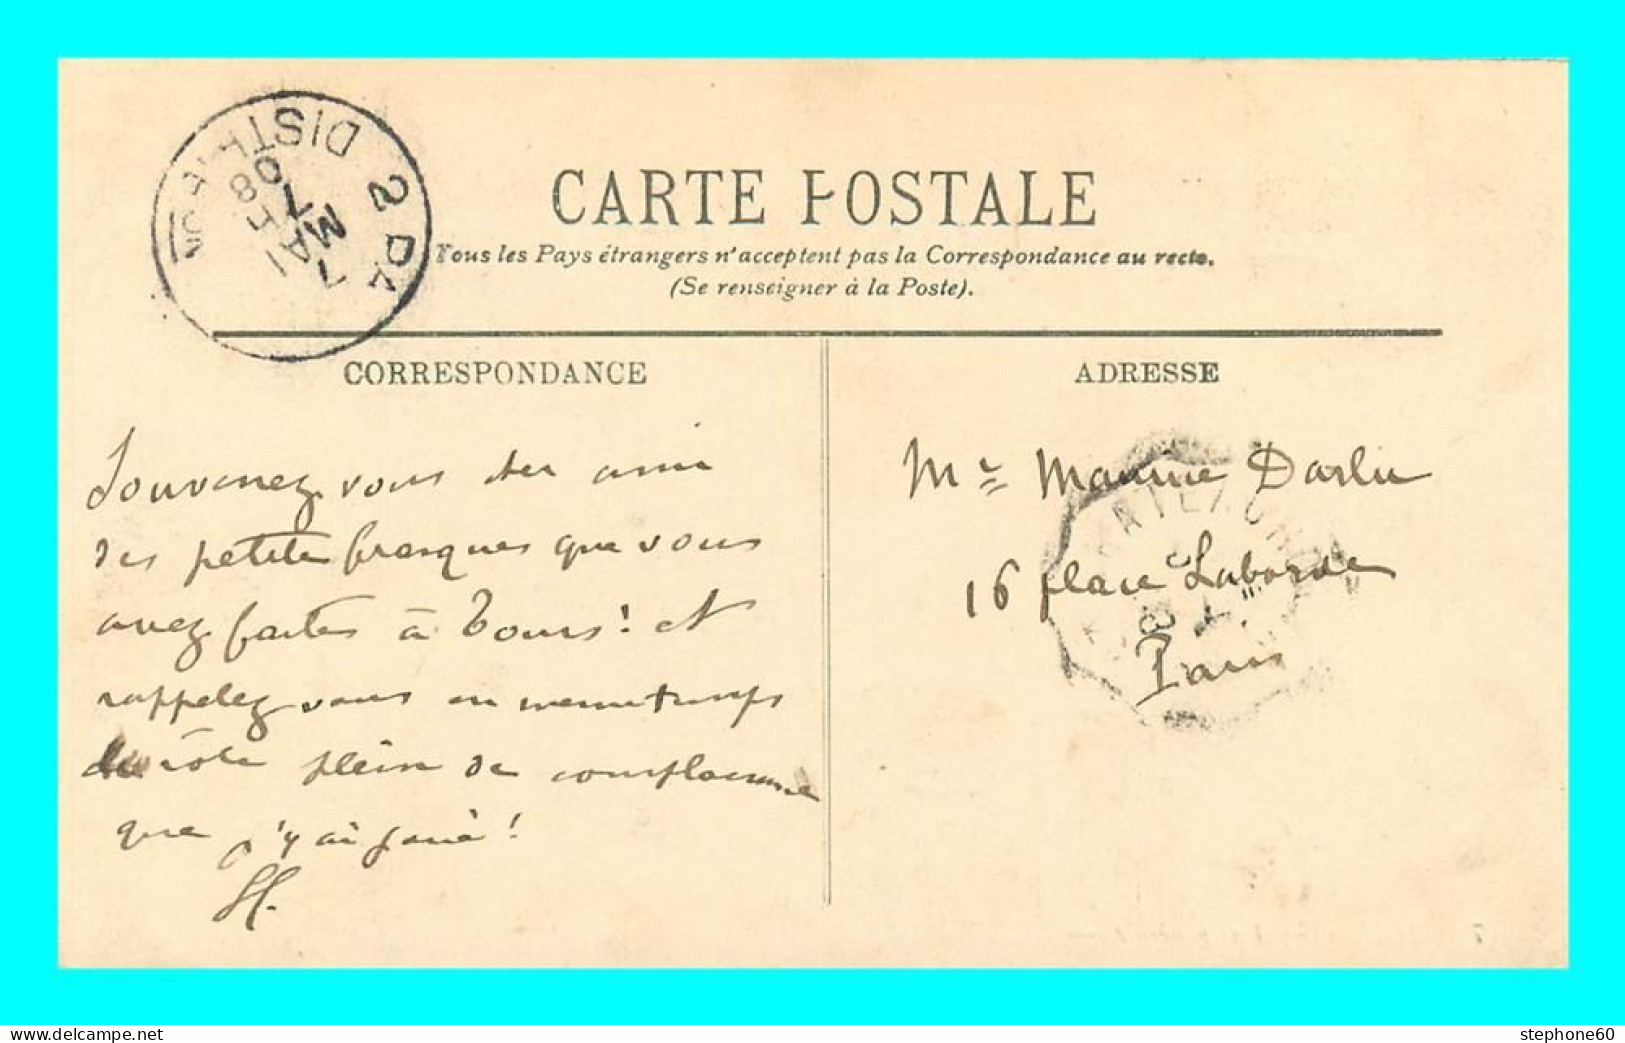 CARTE POSTALE
Tous les Pays étrangers n'acceptent pas la Correspondance au recto.
(Se renseigner à la Poste).
CORRESPONDANCE
ADRESSE
2
DISTR
08
7
MAI
7
Souvenez vous cher ami
des petites frasques que vous
avez faites à Tours! Et
rappelez vous en meme temps
du rôle plein de complaisance
que j'y ai joué!
Mr Maurice Darlu
16 place Laborde
Paris
stephone60
www.delcampe.net